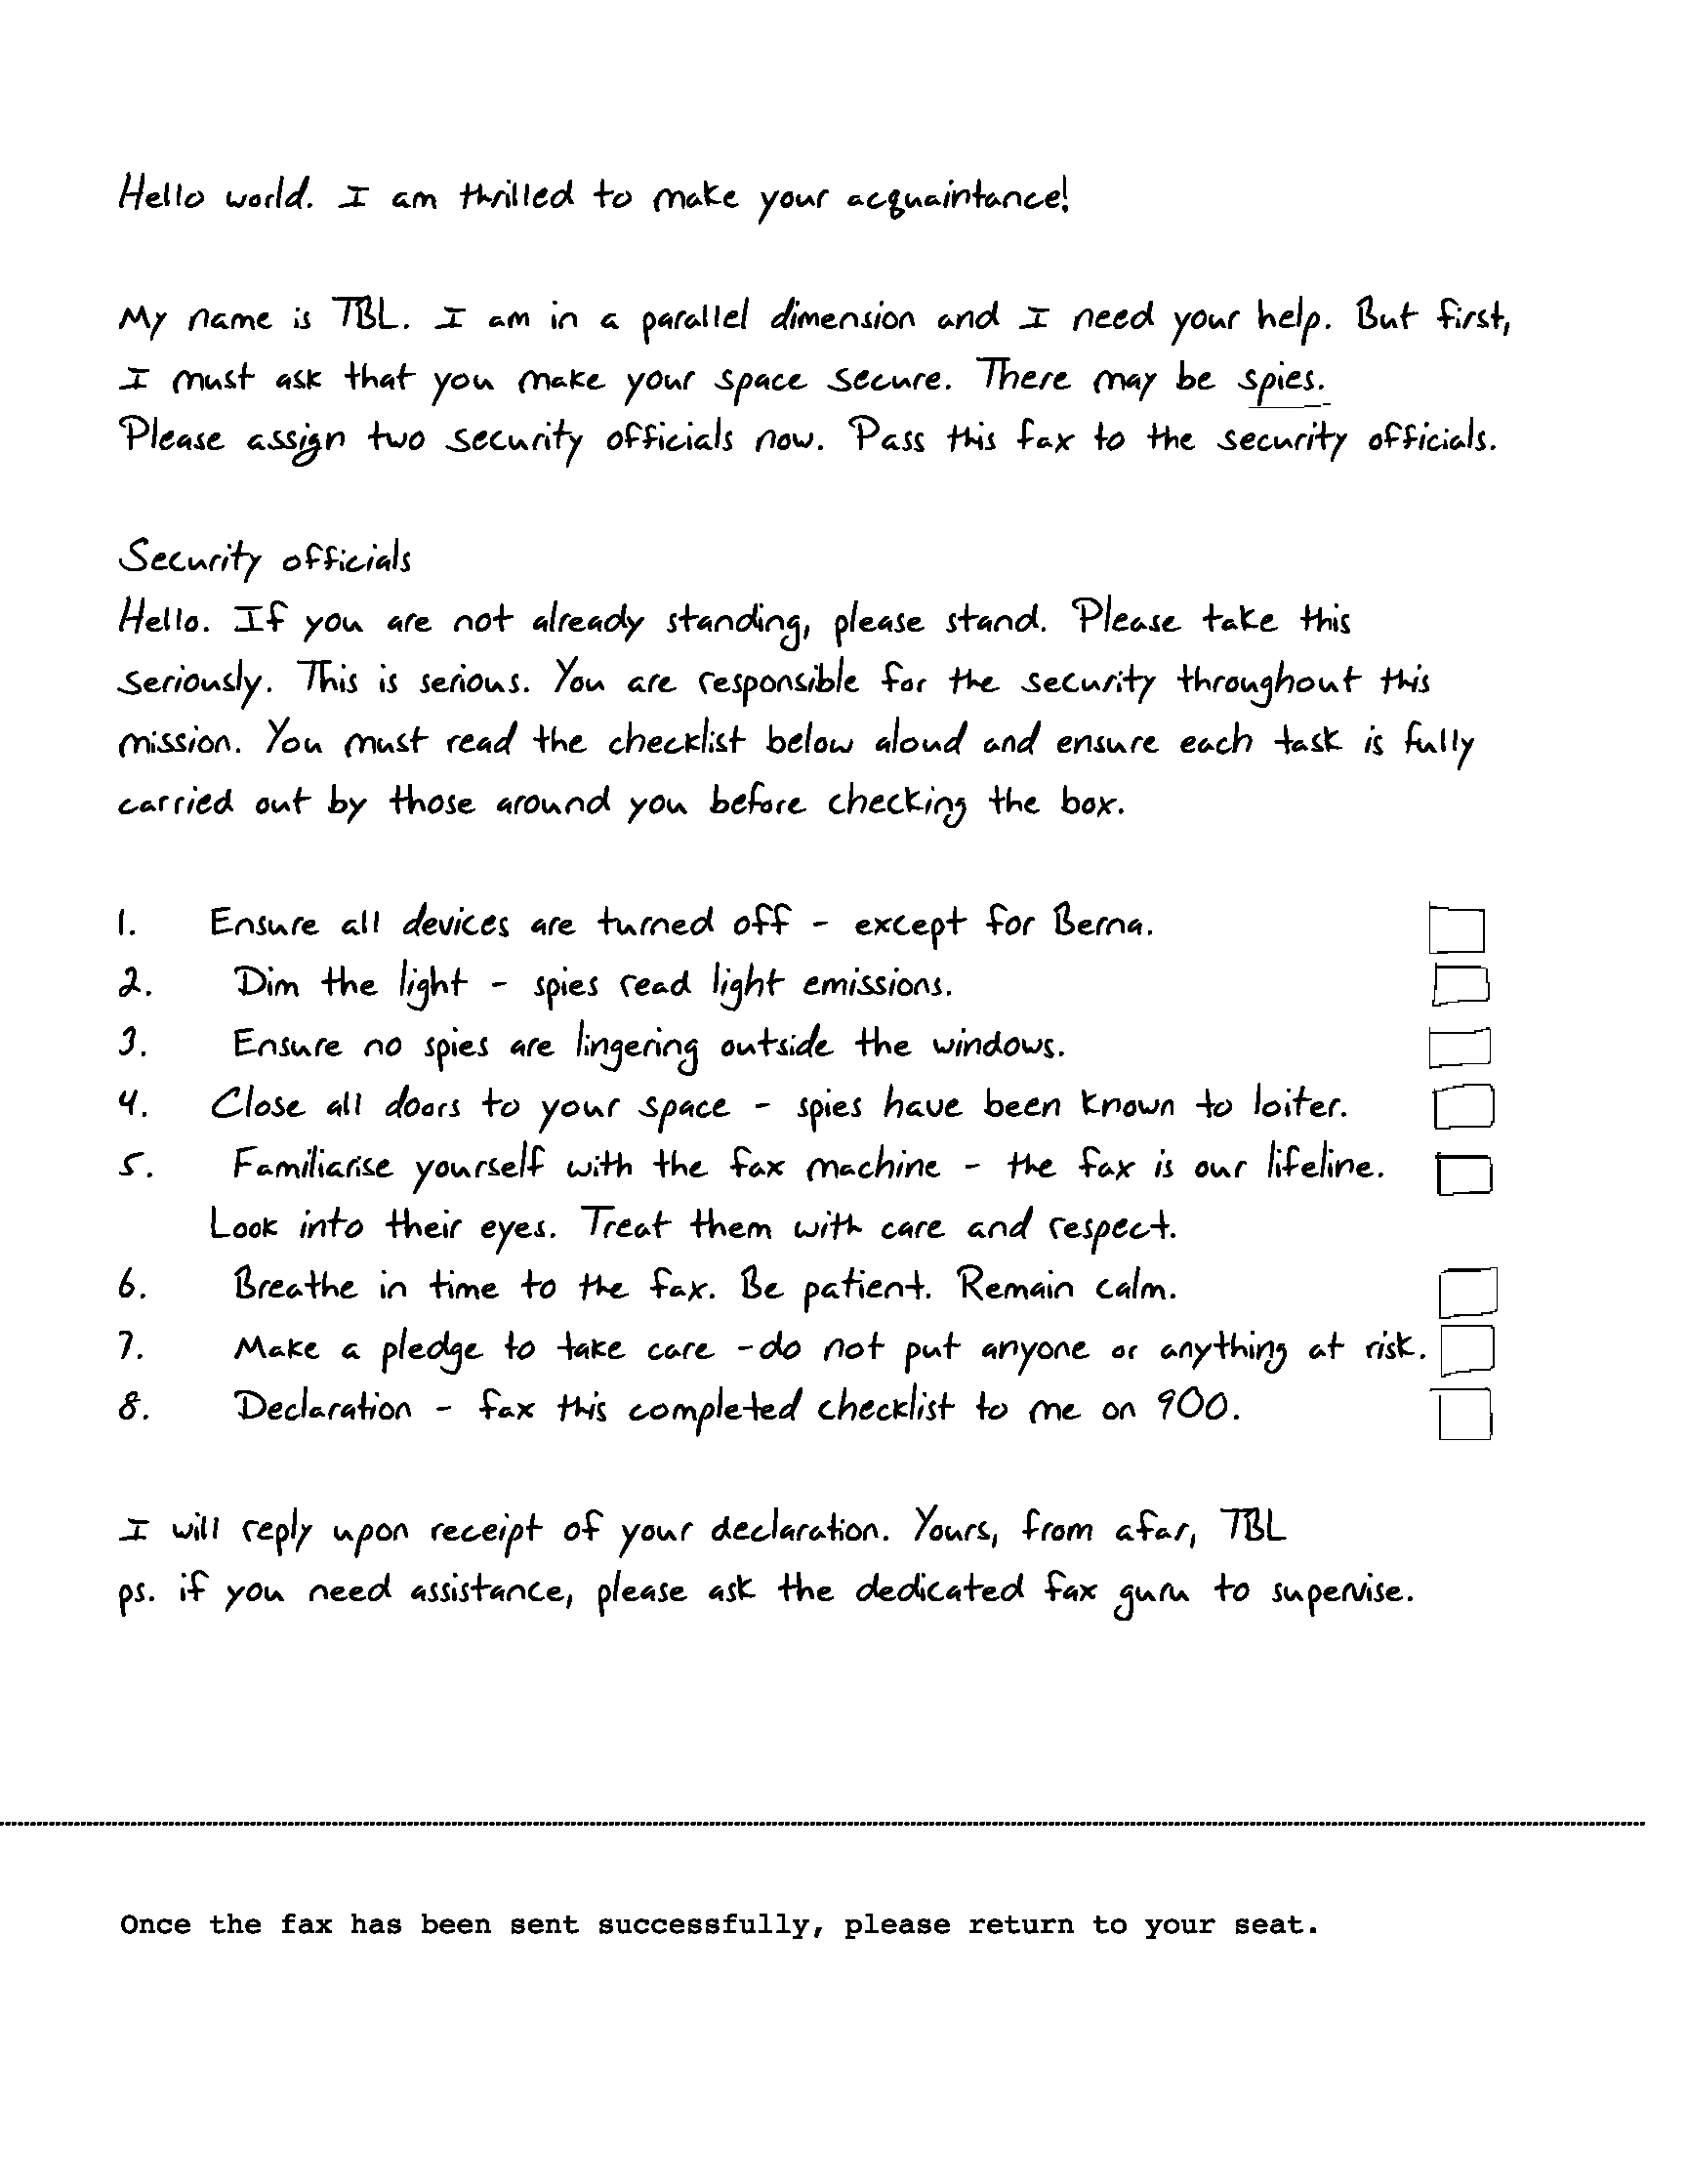 Hello world. I am thrilled to make your acquaintance!
My name is TBL. I am in a parallel dimension and I need your help. But first,
I must ask that you make your space secure. There may be spies.
Please assign two security officials now. Pass this fax to the security officials.
Security officials
Hello. If you are not already standing, please stand. Please take this
seriously. This is serious. You are responsible for the security throughout this
mission. You must read the checklist below aloud and ensure each task is fully
carried out by those around you before checking the box.
1. Ensure all devices are turned off - except for Berna.
2. Dim the light - spies read light emissions.
3. Ensure no spies are lingering outside the windows.
4. Close all doors to your space - spies have been known to loiter.
5. Familiarise yourself with the fax machine - the fax is our lifeline.
Look into their eyes. Treat them with care and respect.
6. Breathe in time to the fax. Be patient. Remain calm.
7. Make a pledge to take care - do not put anyone or anything at risk.
8. Declaration - fax this completed checklist to me on 900.
I will reply upon receipt of your declaration. Yours, from afar, TBL
ps. if you need assistance, please ask the dedicated fax guru to supervise.
Once the fax has been sent successfully, please return to your seat.